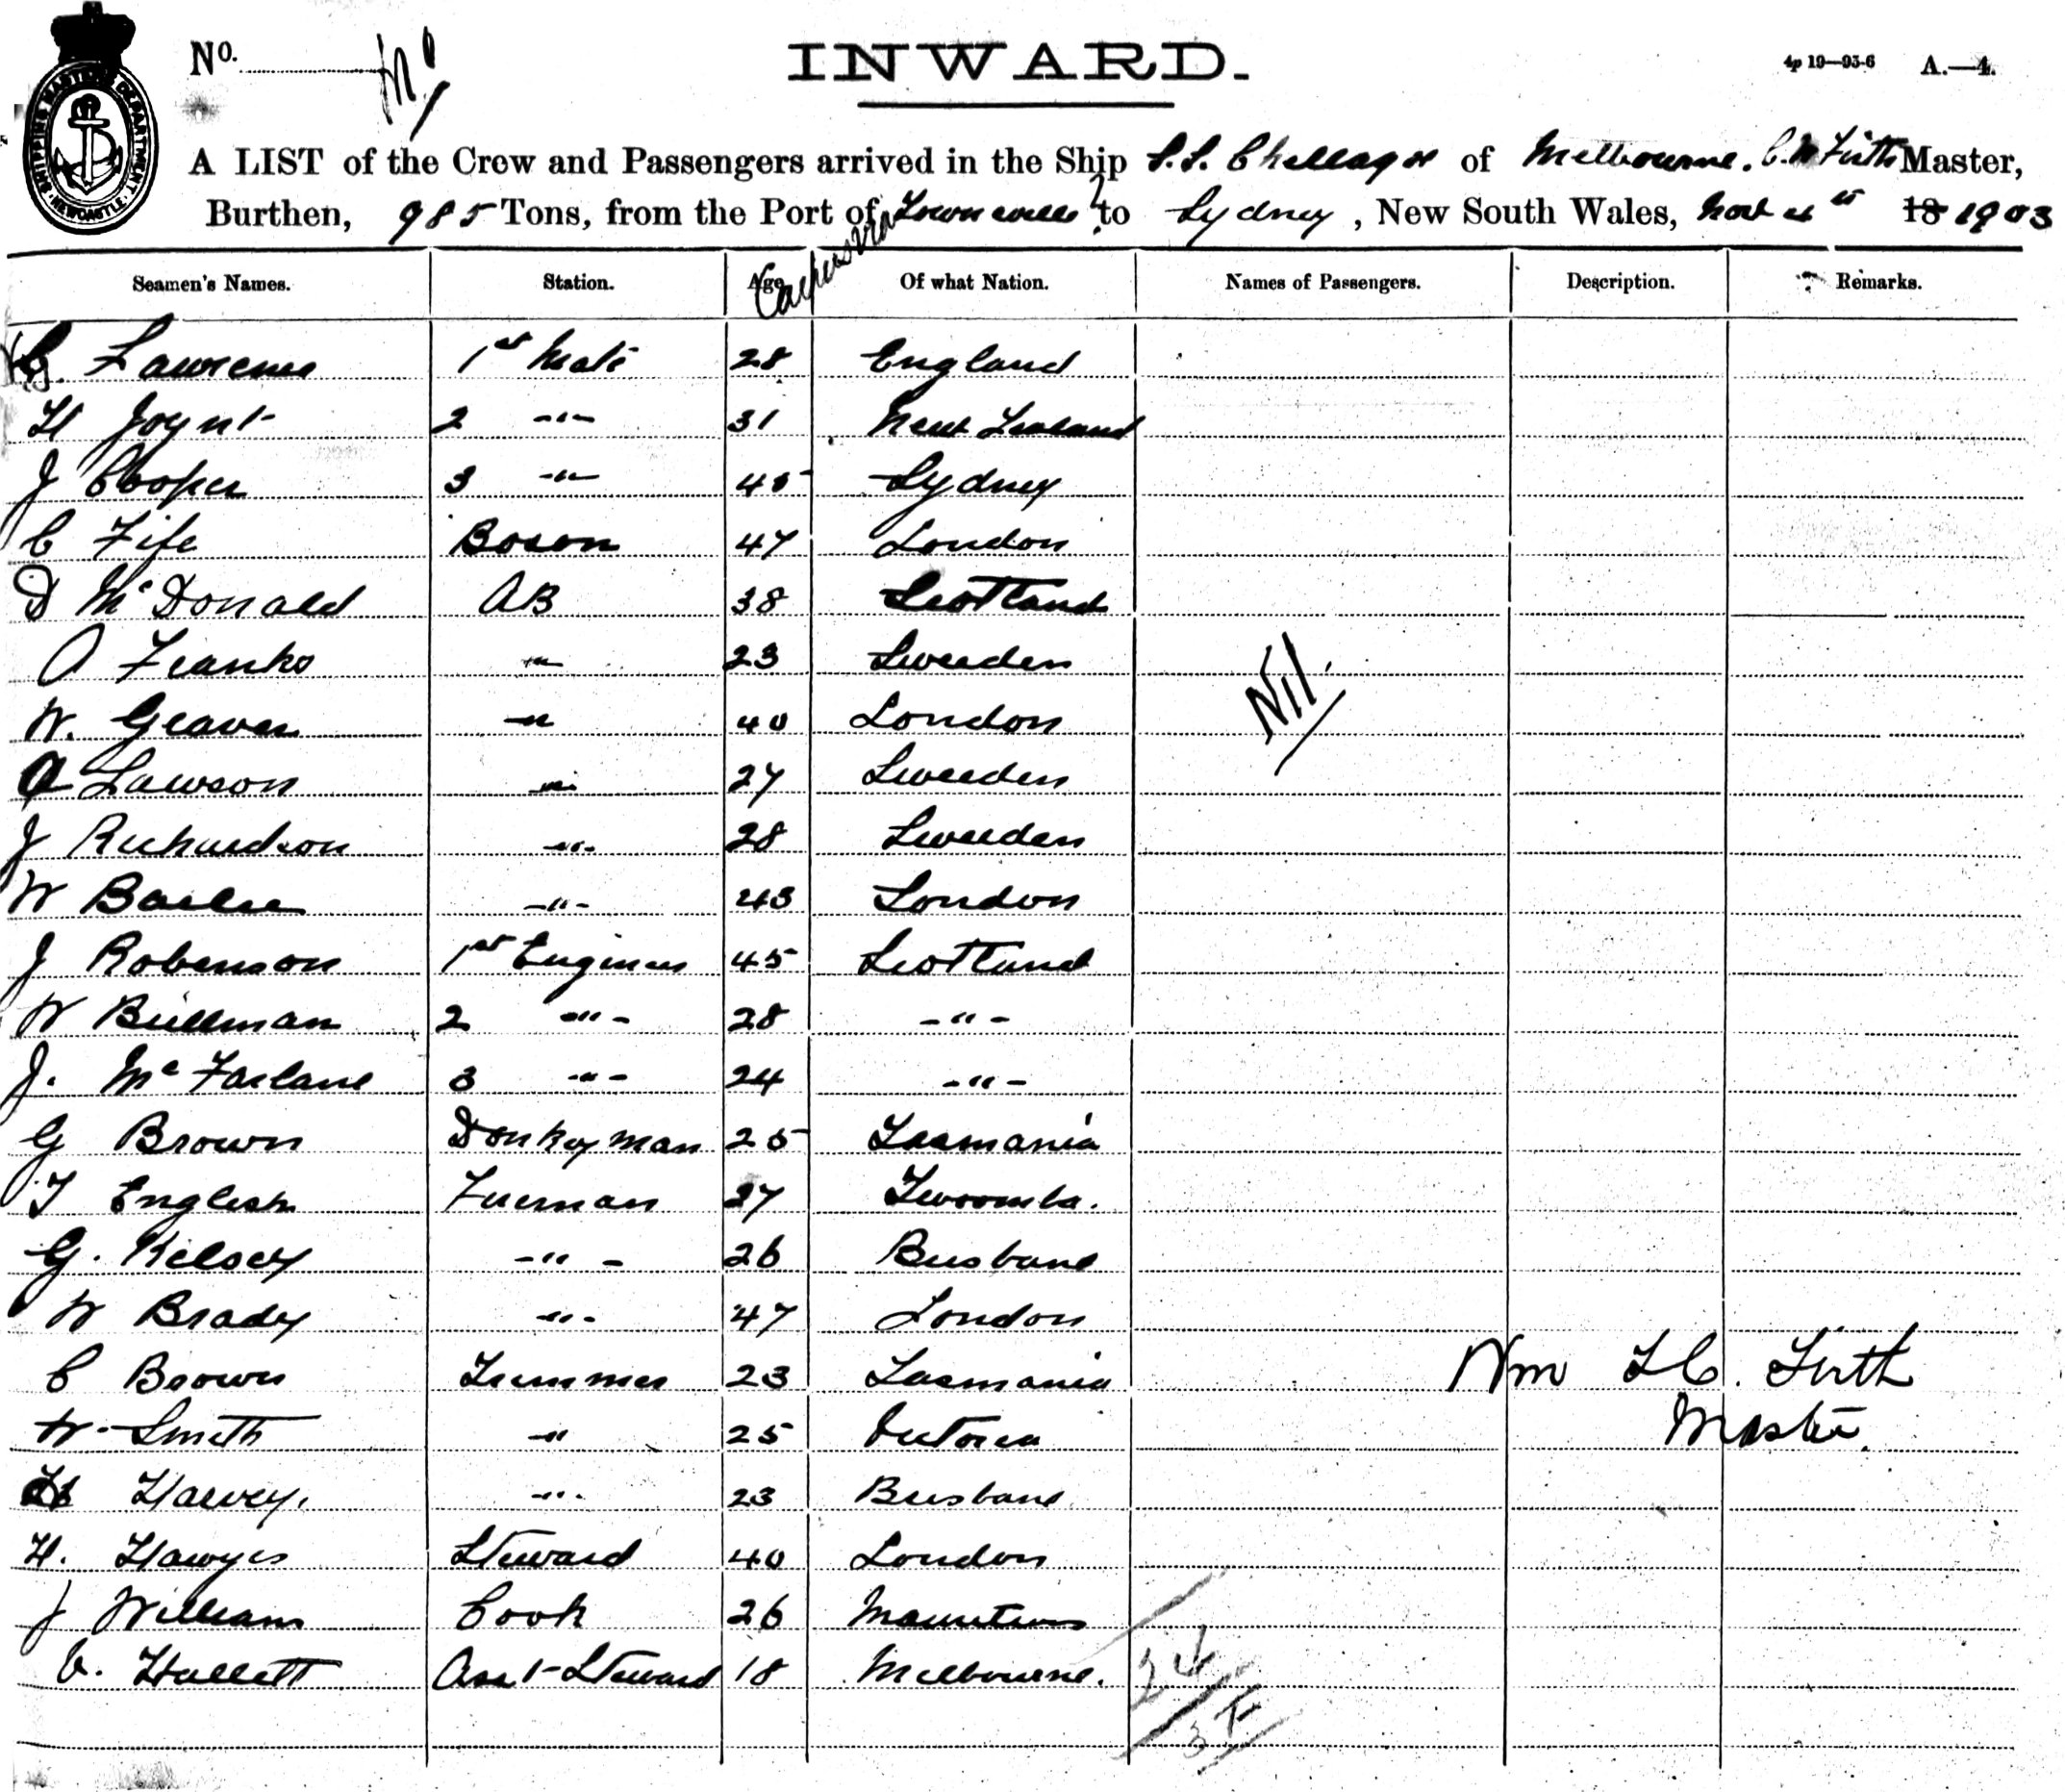 SHIPPING MASTER'S DEPARTMENT
NEWCASTLE
No.
INWARD.
4p 19—93-6 A.—4.
A LIST of the Crew and Passengers arrived in the Ship S.S. of Melbourne. Firth Master,
Burthen, 985 Tons, from the Port of Townsville to Sydney, New South Wales, 18 1903
Seamen's Names. Station. Age Of what Nation. Names of Passengers. Description. Remarks.
Lawrence 1st Mate 28 England
H Joynt 2 -"- 31 New Zealand
J Cooper 3 -"- 45 Sydney
C Fife Boson 47 London
D McDonald AB 38 Scotland
A Franks -"- 23 Sweeden
W. -"- 40 London
A Lawson -"- 27 Sweeden
Nil.
J Richardson -"- 28 Sweeden
W -"- 43 London
J Robenson 1st Engineer 45 Scotland
W Bullman 2 -"- 28 -"-
J. McFarlane 3 -"- 24 -"-
G Brown Donkeyman 25 Tasmania
T English Fireman 27
G. Kelsey -"- 26 Brisbane
W Brady -"- 47 London
C Brown Trimmer 23 Tasmania
Wm H C. Firth
W. Smith -"- 25 Victoria
Master.
Harvey. -"- 23 Brisbane
H. Hawyes Steward 40 London
J Williams Cook 26 Mauritius
Hallett Asst-Steward 18 Melbourne.
24
3